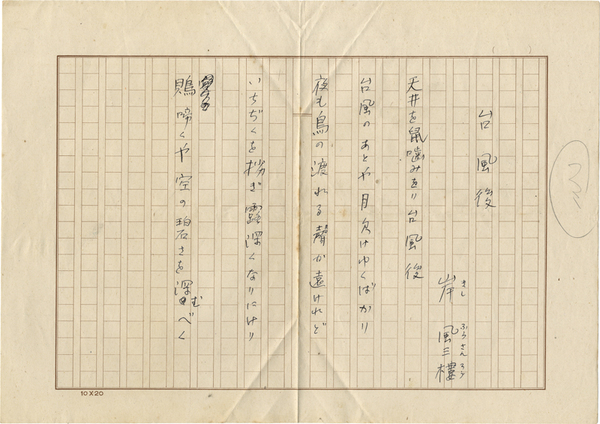 台風後
岸風三樓
きし ふうさんろう
天井を鼠噛みをり台風後
台風のあとや月欠けゆくばかり
夜も鳥の渡れる聲か遠けれど
いちぢくを捥ぎ露深くなりにけり
鵙啼くや空の碧さを深むべく
10×20